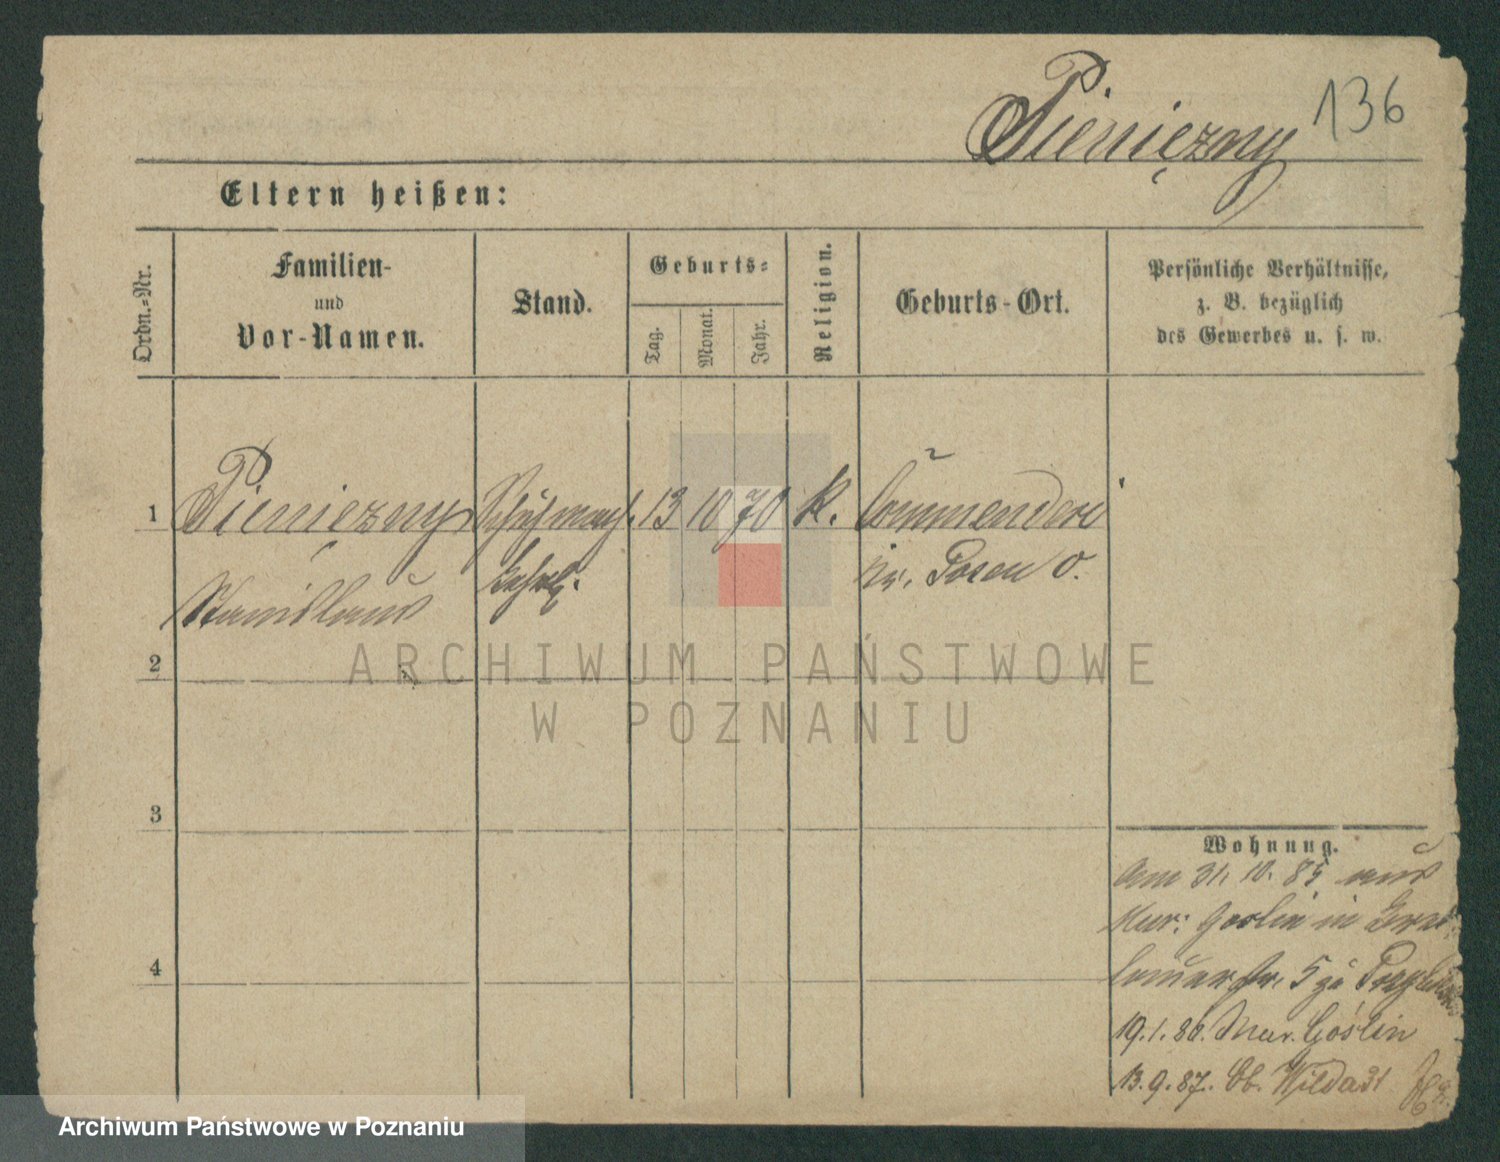 Pieniężny 136
Eltern heißen:
Ordn.-Nr.
Familien-
und
Vor-Namen.
Stand.
Geburts-
Tag.
Monat.
Jahr.
Religion.
Geburts-Ort.
Persönliche Verhältnisse,
z. B. bezüglich
des Gewerbes u. s. w.
1 Pieniężny Schuhmach. 13 10 70 K. Commenderi
Stanislaus Kr. Posen O.
2
3
4
Wohnung.
Am 31. 10. 85 aus
Mur: Goslin in
5 zu
19.1.86. Mur. Goslin
13.9.87. Ob. Wilda 31
ARCHIWUM PAŃSTWOWE
W POZNANIU
Archiwum Państwowe w Poznaniu